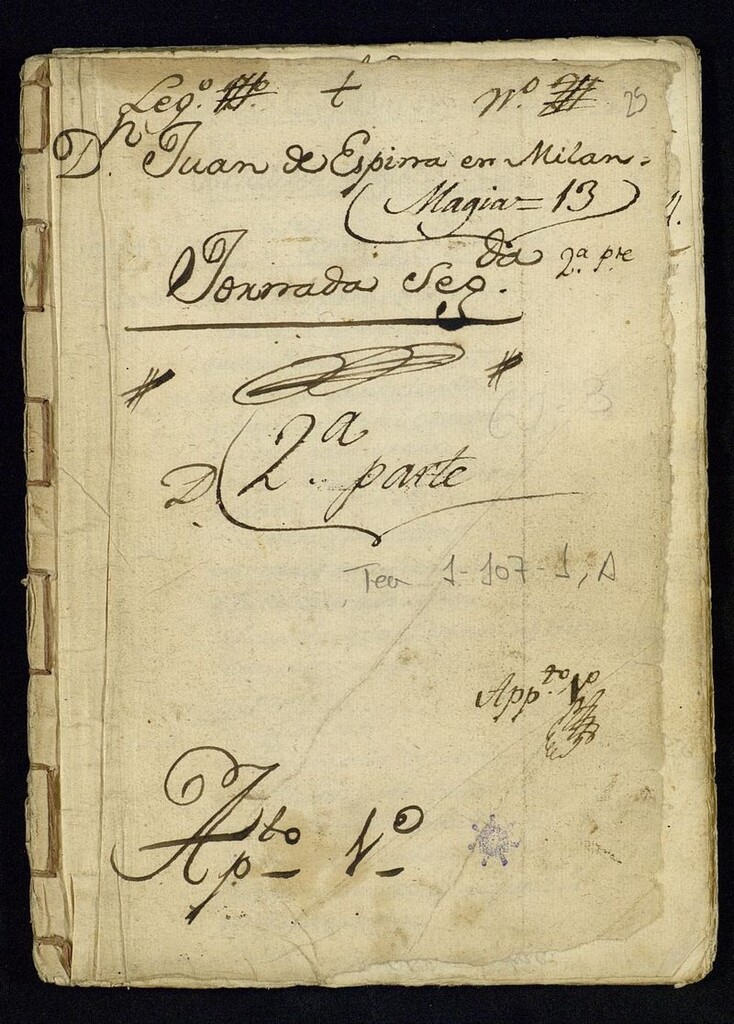 Leg.º + N.º 25
D.n Juan de Espina en Milan.
(Magia = 13)
Jornada Seg.da 2.ª p.te
# #
2.ª parte
D.
Tea 1-107-1, A
App.to 1º
Ap.to 1º